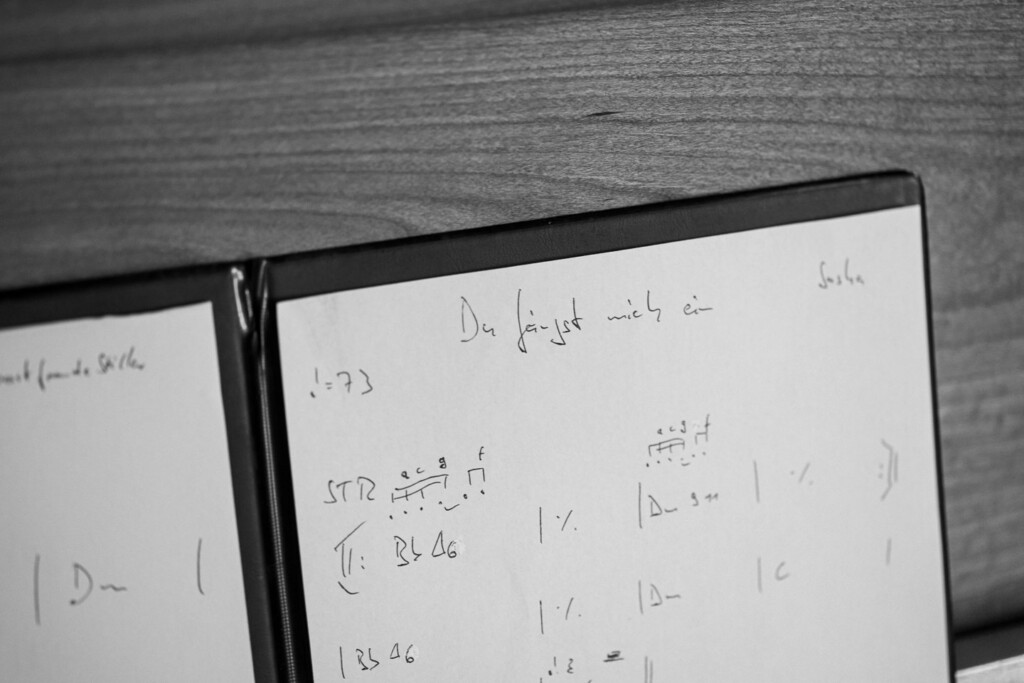 Stiller
| Dm |
Du fängst mich ein
Sasha
♩=73
STR a c g f a c g f
‖: Bb Δ6 | ٪ | Dm 9 11 | ٪ :‖
| Bb Δ6 | ٪ | Dm | C |